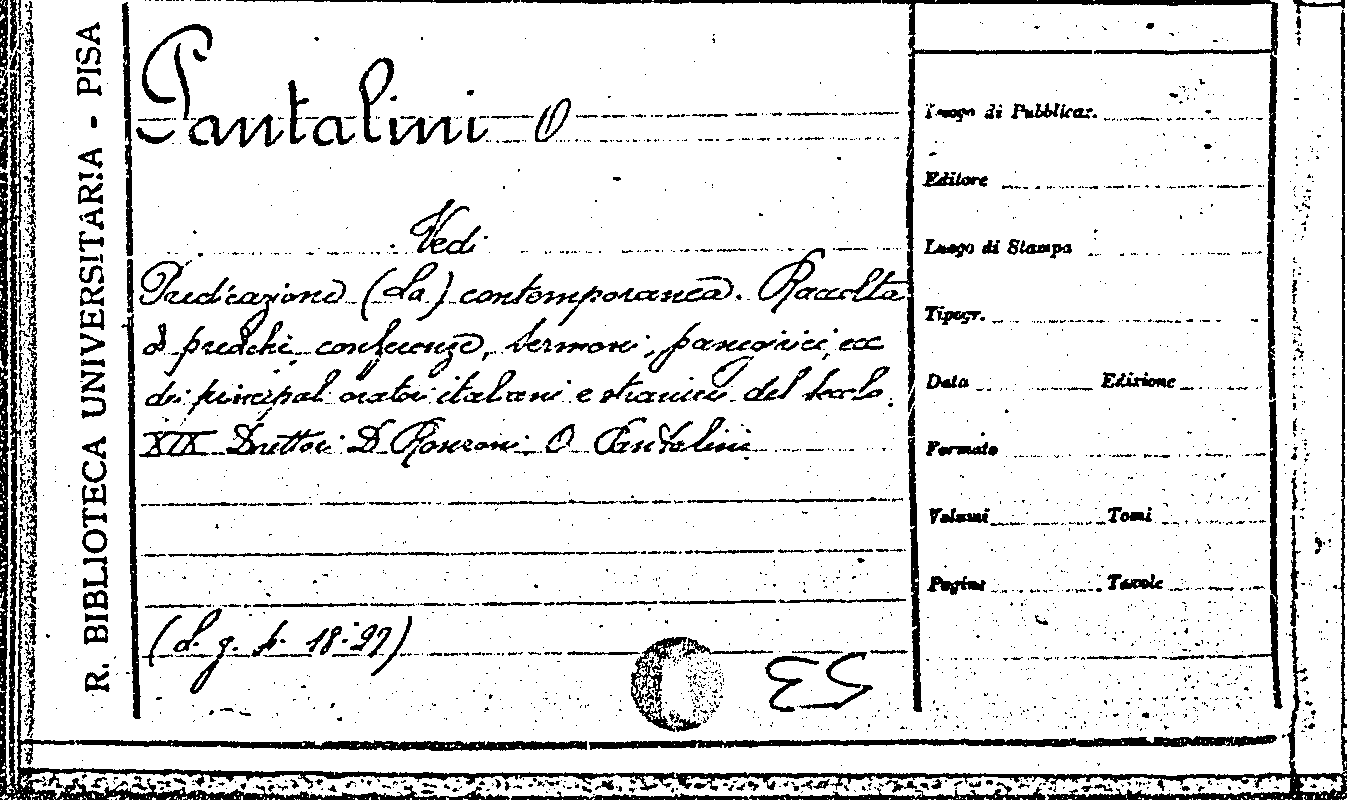 R. BIBLIOTECA UNIVERSITARIA - PISA
Pantalini O
Vedi
Predicazione (La) contemporanea. Raccolta
di prediche, conferenze, sermoni, panegirici, ecc
dei principali oratori italiani e stranieri del secolo
XIX Direttori D Ronzoni O Pantalini
(d. g. h. 18-27)
Luogo di Pubblicaz.
Editore
Luogo di Stampa
Tipogr.
Data Edizione
Formato
Volumi Tomi
Pagine Tavole